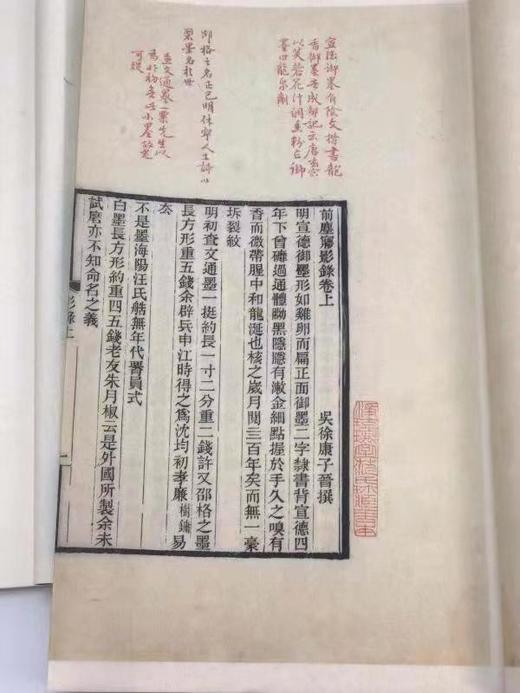 宣德御墨有陰文楷書龍
香御墨 成都記云唐玄宗
以芙蓉花汁調香粉作御
墨曰龍香劑
邵格之名正已明休寧人工詩以
製墨名於世
查文通墨
可證
前塵㝱影錄卷上
吳徐康子晉撰
明宣德御墨形如雞卵而扁正面御墨二字隸書背宣德四
年下曾礲過通體黝黑隱隱有漱金細點握於手久之嗅有
香而微帶腥中和龍涎也核之歲月閱三百年矣而無一毫
坼裂紋
明初查文通墨一挺約長一寸二分重二錢許又邵格之墨
長方形重五錢余辟兵申江時得之爲沈均初孝廉樹鏞易
厺
不是墨海陽汪氏䑛無年代署員式
白墨長方形約重四五錢老友朱月椒云是外國所製余未
試磨亦不知命名之義
影錄上
一